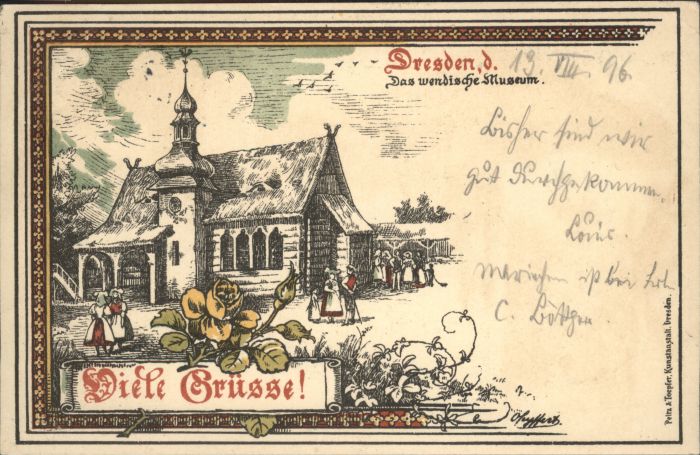 Dresden, d. 13. VIII. 96.
Das wendische Museum.
Bisher sind wir
gut durchgekommen.
Louis.
Mariechen ist bei Frl.
C. Böttger.
Viele Grüsse!
Peitz & Toepfer, Kunstanstalt, Dresden.